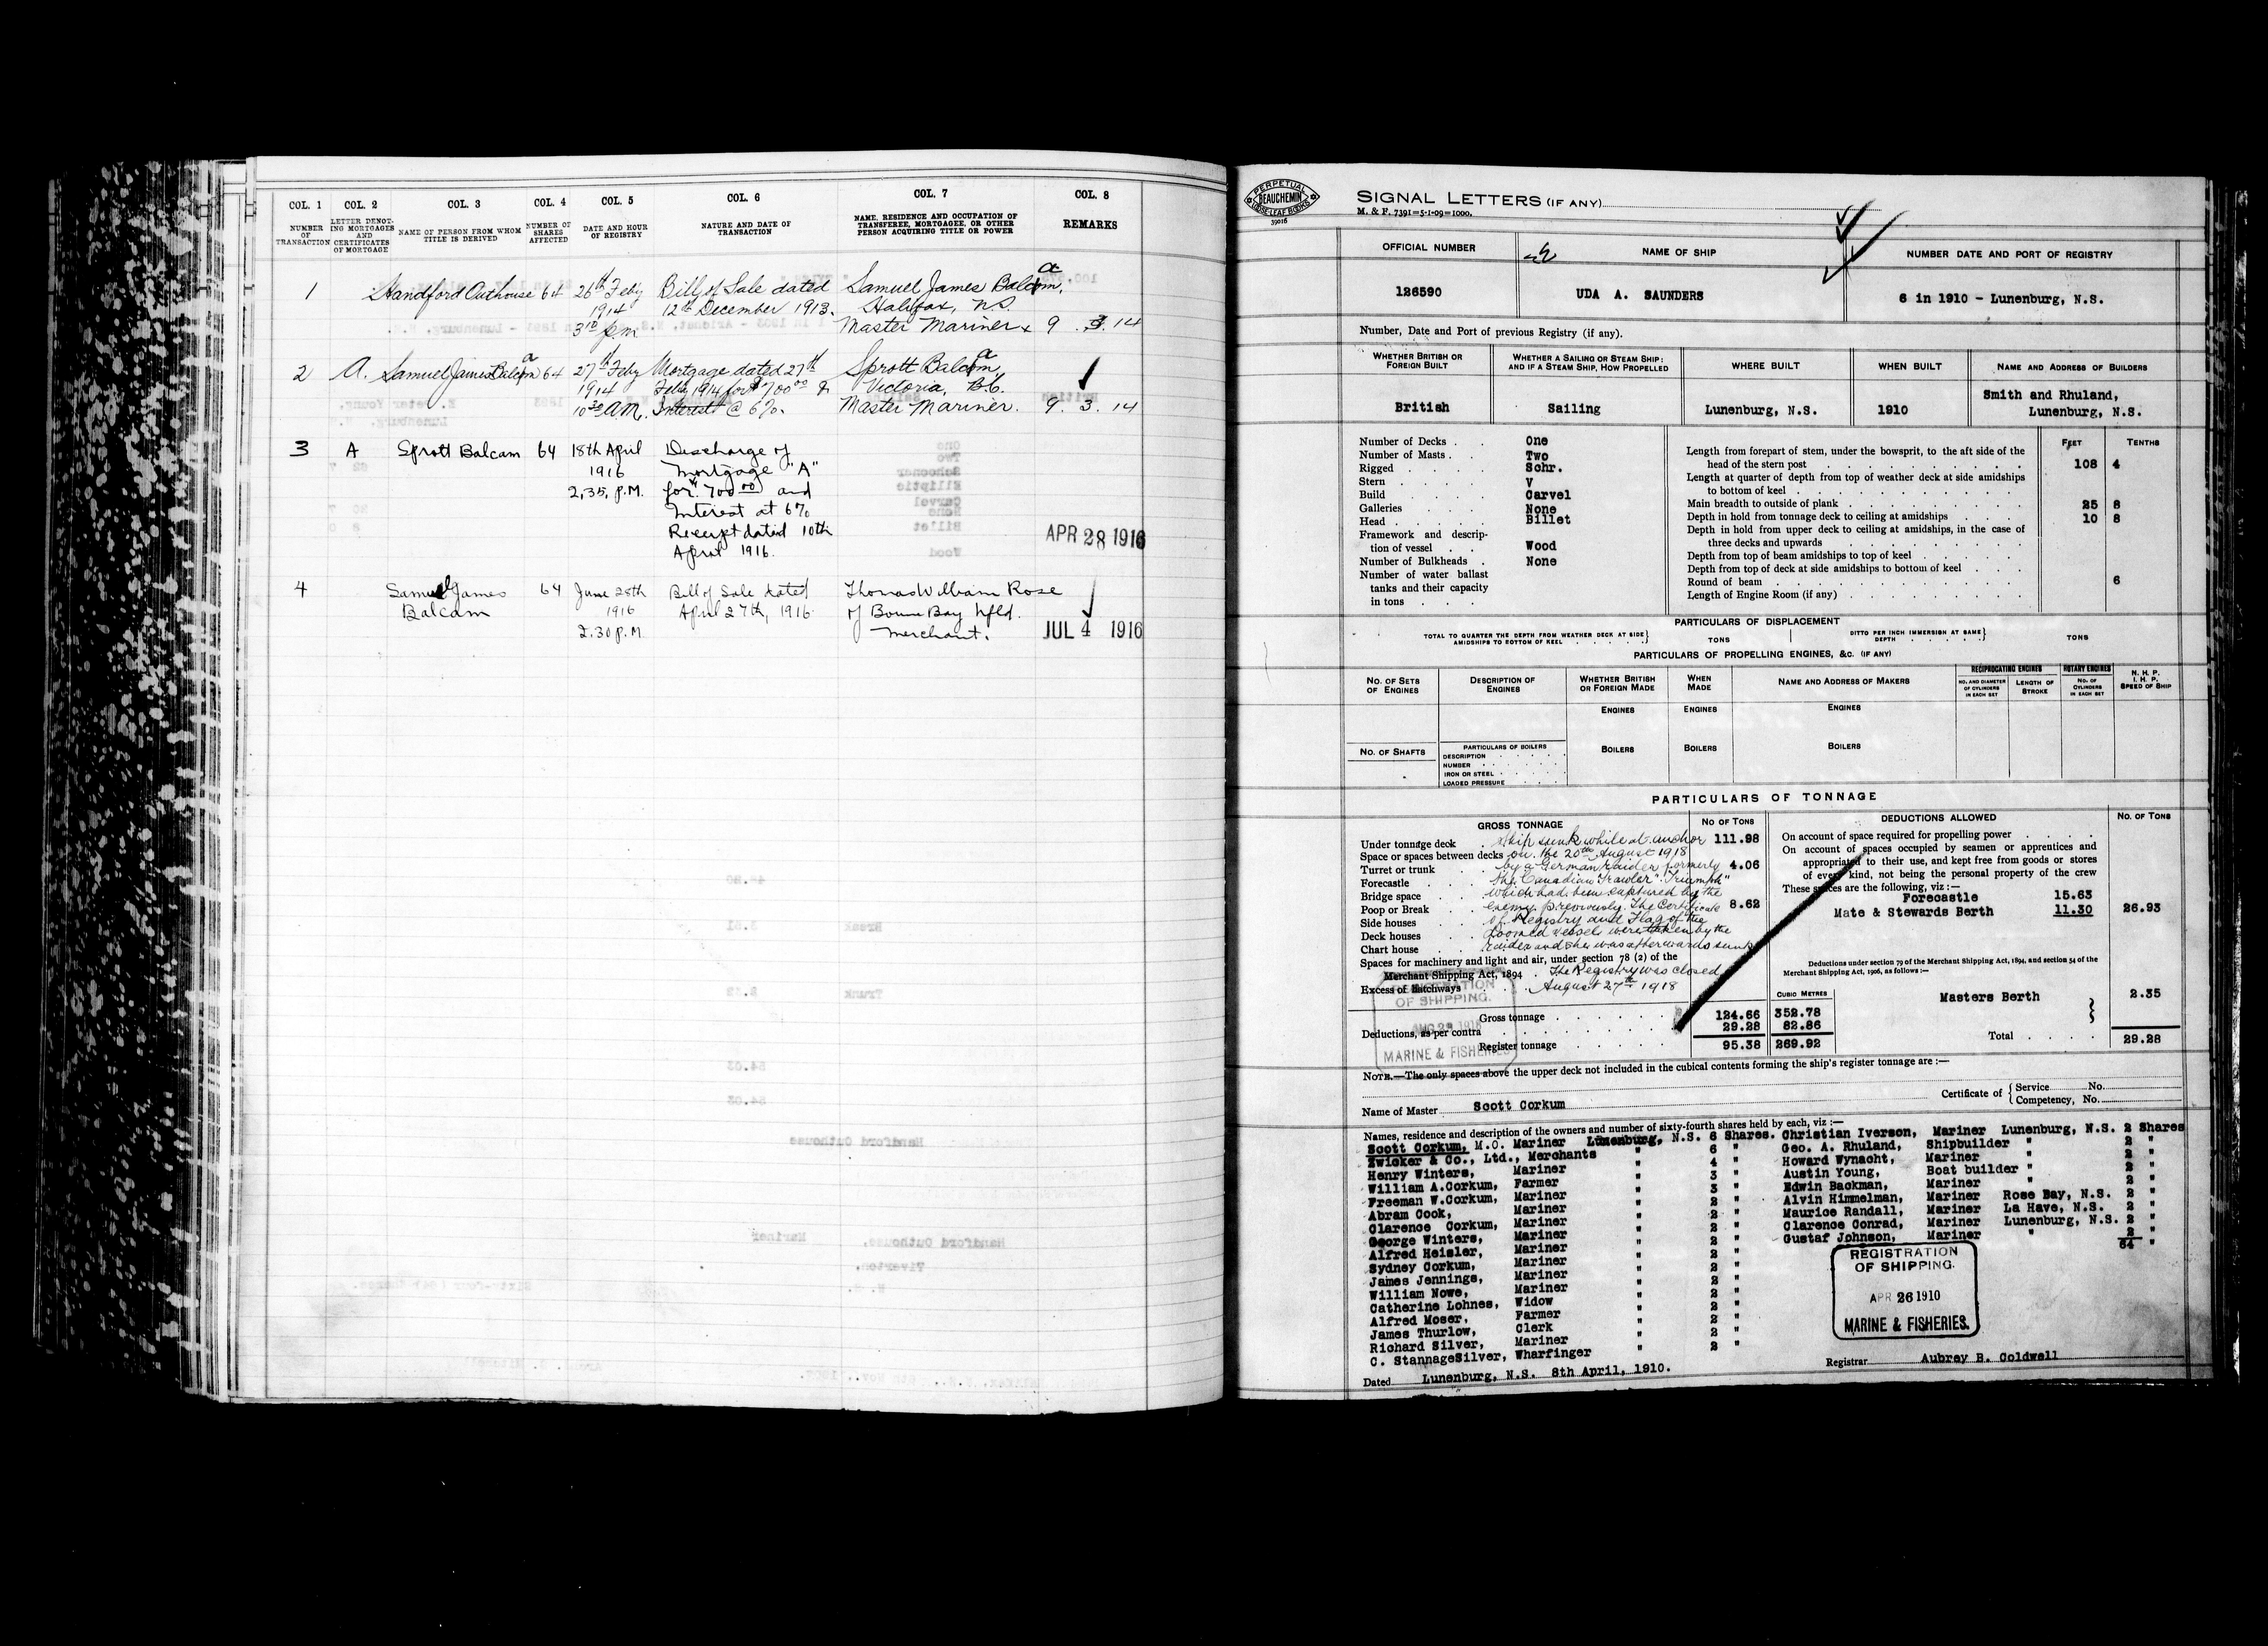 COL. 1 COL. 2 COL. 3 COL. 4 COL. 5 COL. 6 COL. 7 COL. 8
NUMBER OF TRANSACTION
LETTER DENOTING MORTGAGES AND CERTIFICATES OF MORTGAGE
NAME OF PERSON FROM WHOM TITLE IS DERIVED
NUMBER OF SHARES AFFECTED
DATE AND HOUR OF REGISTRY
NATURE AND DATE OF TRANSACTION
NAME, RESIDENCE AND OCCUPATION OF TRANSFEREE, MORTGAGEE, OR OTHER PERSON ACQUIRING TITLE OR POWER
REMARKS
1 Handford Outhouse 64 26th Feby Bill of Sale dated Samuel James Balcam,
1914 12th December 1913. Halifax, N.S.
3 10 p.m Master Mariner 9 . 3. 14
2 A. Samuel James Balcam 64 27th Feby Mortgage dated 27th Sprott Balcam,
1914 Feby 1914 for $700 00 & Victoria, B.C.
10 30 A.M. Interest @ 6%. Master Mariner. 9. 3. 14
3 A Sprott Balcam 64 18th April Discharge of
1916 Mortgage "A"
2.35, P.M. for $700 00 and
Interest at 6%
Receipt dated 10th
April 1916.
APR 28 1916
4 Samuel James 64 June 28th Bill of Sale dated Thomas William Rose
Balcam 1916 April 27th, 1916. of Bonne Bay Nfld.
2.30 P.M. Merchant.
JUL 4 1916
PERPETUAL
BEAUCHEMIN
LOOSE-LEAF BOOKS
39016
SIGNAL LETTERS (IF ANY)
M. & F. 7391=5-1-09=1000.
OFFICIAL NUMBER NAME OF SHIP NUMBER DATE AND PORT OF REGISTRY
126590 UDA A. SAUNDERS 6 in 1910 - Lunenburg, N.S.
Number, Date and Port of previous Registry (if any).
WHETHER BRITISH OR FOREIGN BUILT
WHETHER A SAILING OR STEAM SHIP: AND IF A STEAM SHIP, HOW PROPELLED
WHERE BUILT
WHEN BUILT
NAME AND ADDRESS OF BUILDERS
British Sailing Lunenburg, N.S. 1910 Smith and Rhuland,
Lunenburg, N.S.
Number of Decks . . One
Number of Masts . . Two
Rigged . . . . Schr.
Stern . . . . V
Build . . . . Carvel
Galleries . . . None
Head . . . . Billet
Framework and description of vessel . . Wood
Number of Bulkheads . None
Number of water ballast
tanks and their capacity
in tons . . .
FEET TENTHS
Length from forepart of stem, under the bowsprit, to the aft side of the
head of the stern post 108 4
Length at quarter of depth from top of weather deck at side amidships
to bottom of keel
Main breadth to outside of plank 25 8
Depth in hold from tonnage deck to ceiling at amidships 10 8
Depth in hold from upper deck to ceiling at amidships, in the case of
three decks and upwards
Depth from top of beam amidships to top of keel
Depth from top of deck at side amidships to bottom of keel
Round of beam 6
Length of Engine Room (if any)
PARTICULARS OF DISPLACEMENT
TOTAL TO QUARTER THE DEPTH FROM WEATHER DECK AT SIDE AMIDSHIPS TO BOTTOM OF KEEL TONS DITTO PER INCH IMMERSION AT SAME DEPTH TONS
PARTICULARS OF PROPELLING ENGINES, &C. (IF ANY)
NO. OF SETS OF ENGINES
DESCRIPTION OF ENGINES
WHETHER BRITISH OR FOREIGN MADE
WHEN MADE
NAME AND ADDRESS OF MAKERS
RECIPROCATING ENGINES
NO. AND DIAMETER OF CYLINDERS IN EACH SET
LENGTH OF STROKE
ROTARY ENGINES
NO. OF CYLINDERS IN EACH SET
N. H. P.
I. H. P.
SPEED OF SHIP
ENGINES ENGINES ENGINES
NO. OF SHAFTS
PARTICULARS OF BOILERS
DESCRIPTION
NUMBER
IRON OR STEEL
LOADED PRESSURE
BOILERS BOILERS BOILERS
PARTICULARS OF TONNAGE
GROSS TONNAGE NO OF TONS DEDUCTIONS ALLOWED NO. OF TONS
Under tonnage deck 111.98
Space or spaces between decks
Turret or trunk 4.06
Forecastle
Bridge space
Poop or Break 8.62
Side houses
Deck houses
Chart house
Spaces for machinery and light and air, under section 78 (2) of the
Merchant Shipping Act, 1894
Excess of Hatchways
Ship sunk while at anchor
on the 20th August 1918
by a German raider formerly
the Canadian Trawler "Triumph"
which had been captured by the
enemy previously. The Certificate
of Registry and Flag of the
doomed vessel were taken by the
raider and she was afterwards sunk
The Registry was closed
August 27th 1918
Gross tonnage 124.66 352.78
Deductions, as per contra 29.28 82.86
Register tonnage 95.38 269.92
CUBIC METRES
REGISTRATION
OF SHIPPING.
MARINE & FISHERIES
On account of space required for propelling power
On account of spaces occupied by seamen or apprentices and
appropriated to their use, and kept free from goods or stores
of every kind, not being the personal property of the crew
These spaces are the following, viz :—
Forecastle 15.63
Mate & Stewards Berth 11.30 26.93
Deductions under section 79 of the Merchant Shipping Act, 1894, and section 54 of the
Merchant Shipping Act, 1906, as follows :—
Masters Berth 2.35
Total 29.28
NOTE.—The only spaces above the upper deck not included in the cubical contents forming the ship's register tonnage are :—
Name of Master Scott Corkum
Certificate of { Service No.
Competency, No.
Names, residence and description of the owners and number of sixty-fourth shares held by each, viz :—
Scott Corkum, M.O. Mariner Lunenburg, N.S. 6 Shares.
Zwicker & Co., Ltd., Merchants " 6 "
Henry Winters, Mariner " 4 "
William A.Corkum, Farmer " 3 "
Freeman W.Corkum, Mariner " 3 "
Abram Cook, Mariner " 2 "
Clarence Corkum, Mariner " 2 "
George Winters, Mariner " 2 "
Alfred Heisler, Mariner " 2 "
Sydney Corkum, Mariner " 2 "
James Jennings, Mariner " 2 "
William Nowe, Mariner " 2 "
Catherine Lohnes, Widow " 2 "
Alfred Moser, Farmer " 2 "
James Thurlow, Clerk " 2 "
Richard Silver, Mariner " 2 "
C. StannageSilver, Wharfinger " 2 "
Christian Iverson, Mariner Lunenburg, N.S. 2 Shares
Geo. A. Rhuland, Shipbuilder " 2 "
Howard Wynacht, Mariner " 2 "
Austin Young, Boat builder " 2 "
Edwin Backman, Mariner " 2 "
Alvin Himmelman, Mariner Rose Bay, N.S. 2 "
Maurice Randall, Mariner La Have, N.S. 2 "
Clarence Conrad, Mariner Lunenburg, N.S. 2 "
Gustaf Johnson, Mariner " 2 "
64 "
REGISTRATION
OF SHIPPING.
APR 26 1910
MARINE & FISHERIES.
Dated Lunenburg, N.S. 8th April, 1910.
Registrar Aubrey B. Coldwell